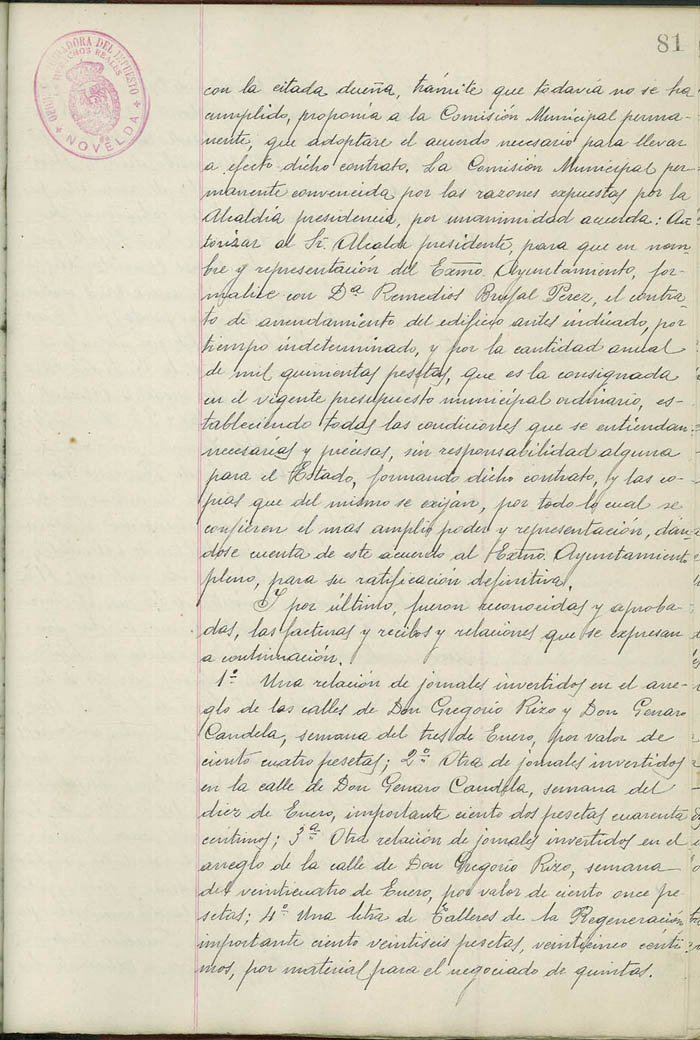 81
LIQUIDADORA DEL IMPUESTO
DERECHOS REALES
NOVELDA
con la citada dueña, trámite que todavía no se ha
cumplido, proponía a la Comisión Municipal perma-
nente, que adoptare el acuerdo necesario para llevar
a efecto dicho contrato. La Comisión Municipal per-
manente convencida por las razones expuestas por la
Alcaldía presidencia, por unanimidad acuerda: Au-
torizar al Sr. Alcalde presidente, para que en nom-
bre y representación del Exmo. Ayuntamiento, for-
malice con Dª Remedios Brufal Perez, el contra-
to de arrendamiento del edificio antes indicado, por
tiempo indeterminado, y por la cantidad anual
de mil quinientas pesetas, que es la consignada
en el vigente presupuesto municipal ordinario, es-
tableciendo todas las condiciones que se entiendan
necesarias y precisas, sin responsabilidad alguna
para el Estado, formando dicho contrato, y las co-
pias que del mismo se exijan, por todo lo cual se
confieren el mas amplio poder y representación, dan-
dose cuenta de este acuerdo al Extmo. Ayuntamiento
pleno, para su ratificación definitiva.
Y por último, fueron reconocidas y aproba-
das, las facturas y recibos y relaciones que se expresan
a continuación.
1º Una relación de jornales invertidos en el arre-
glo de las calles de Don Gregorio Rizo y Don Genaro
Candela, semana del tres de Enero, por valor de
ciento cuatro pesetas; 2º Otra de jornales invertidos
en la calle de Don Genaro Candela, semana del
diez de Enero, importante ciento dos pesetas cuarenta
centimos; 3ª Otra relación de jornales invertidos en el
arreglo de la calle de Don Gregorio Rizo, semana
del veinticuatro de Enero, por valor de ciento once pe-
setas; 4º Una letra de Talleres de la Regeneración
importante ciento veintiseis pesetas, veinticinco cénti-
mos, por material para el negociado de quintas.